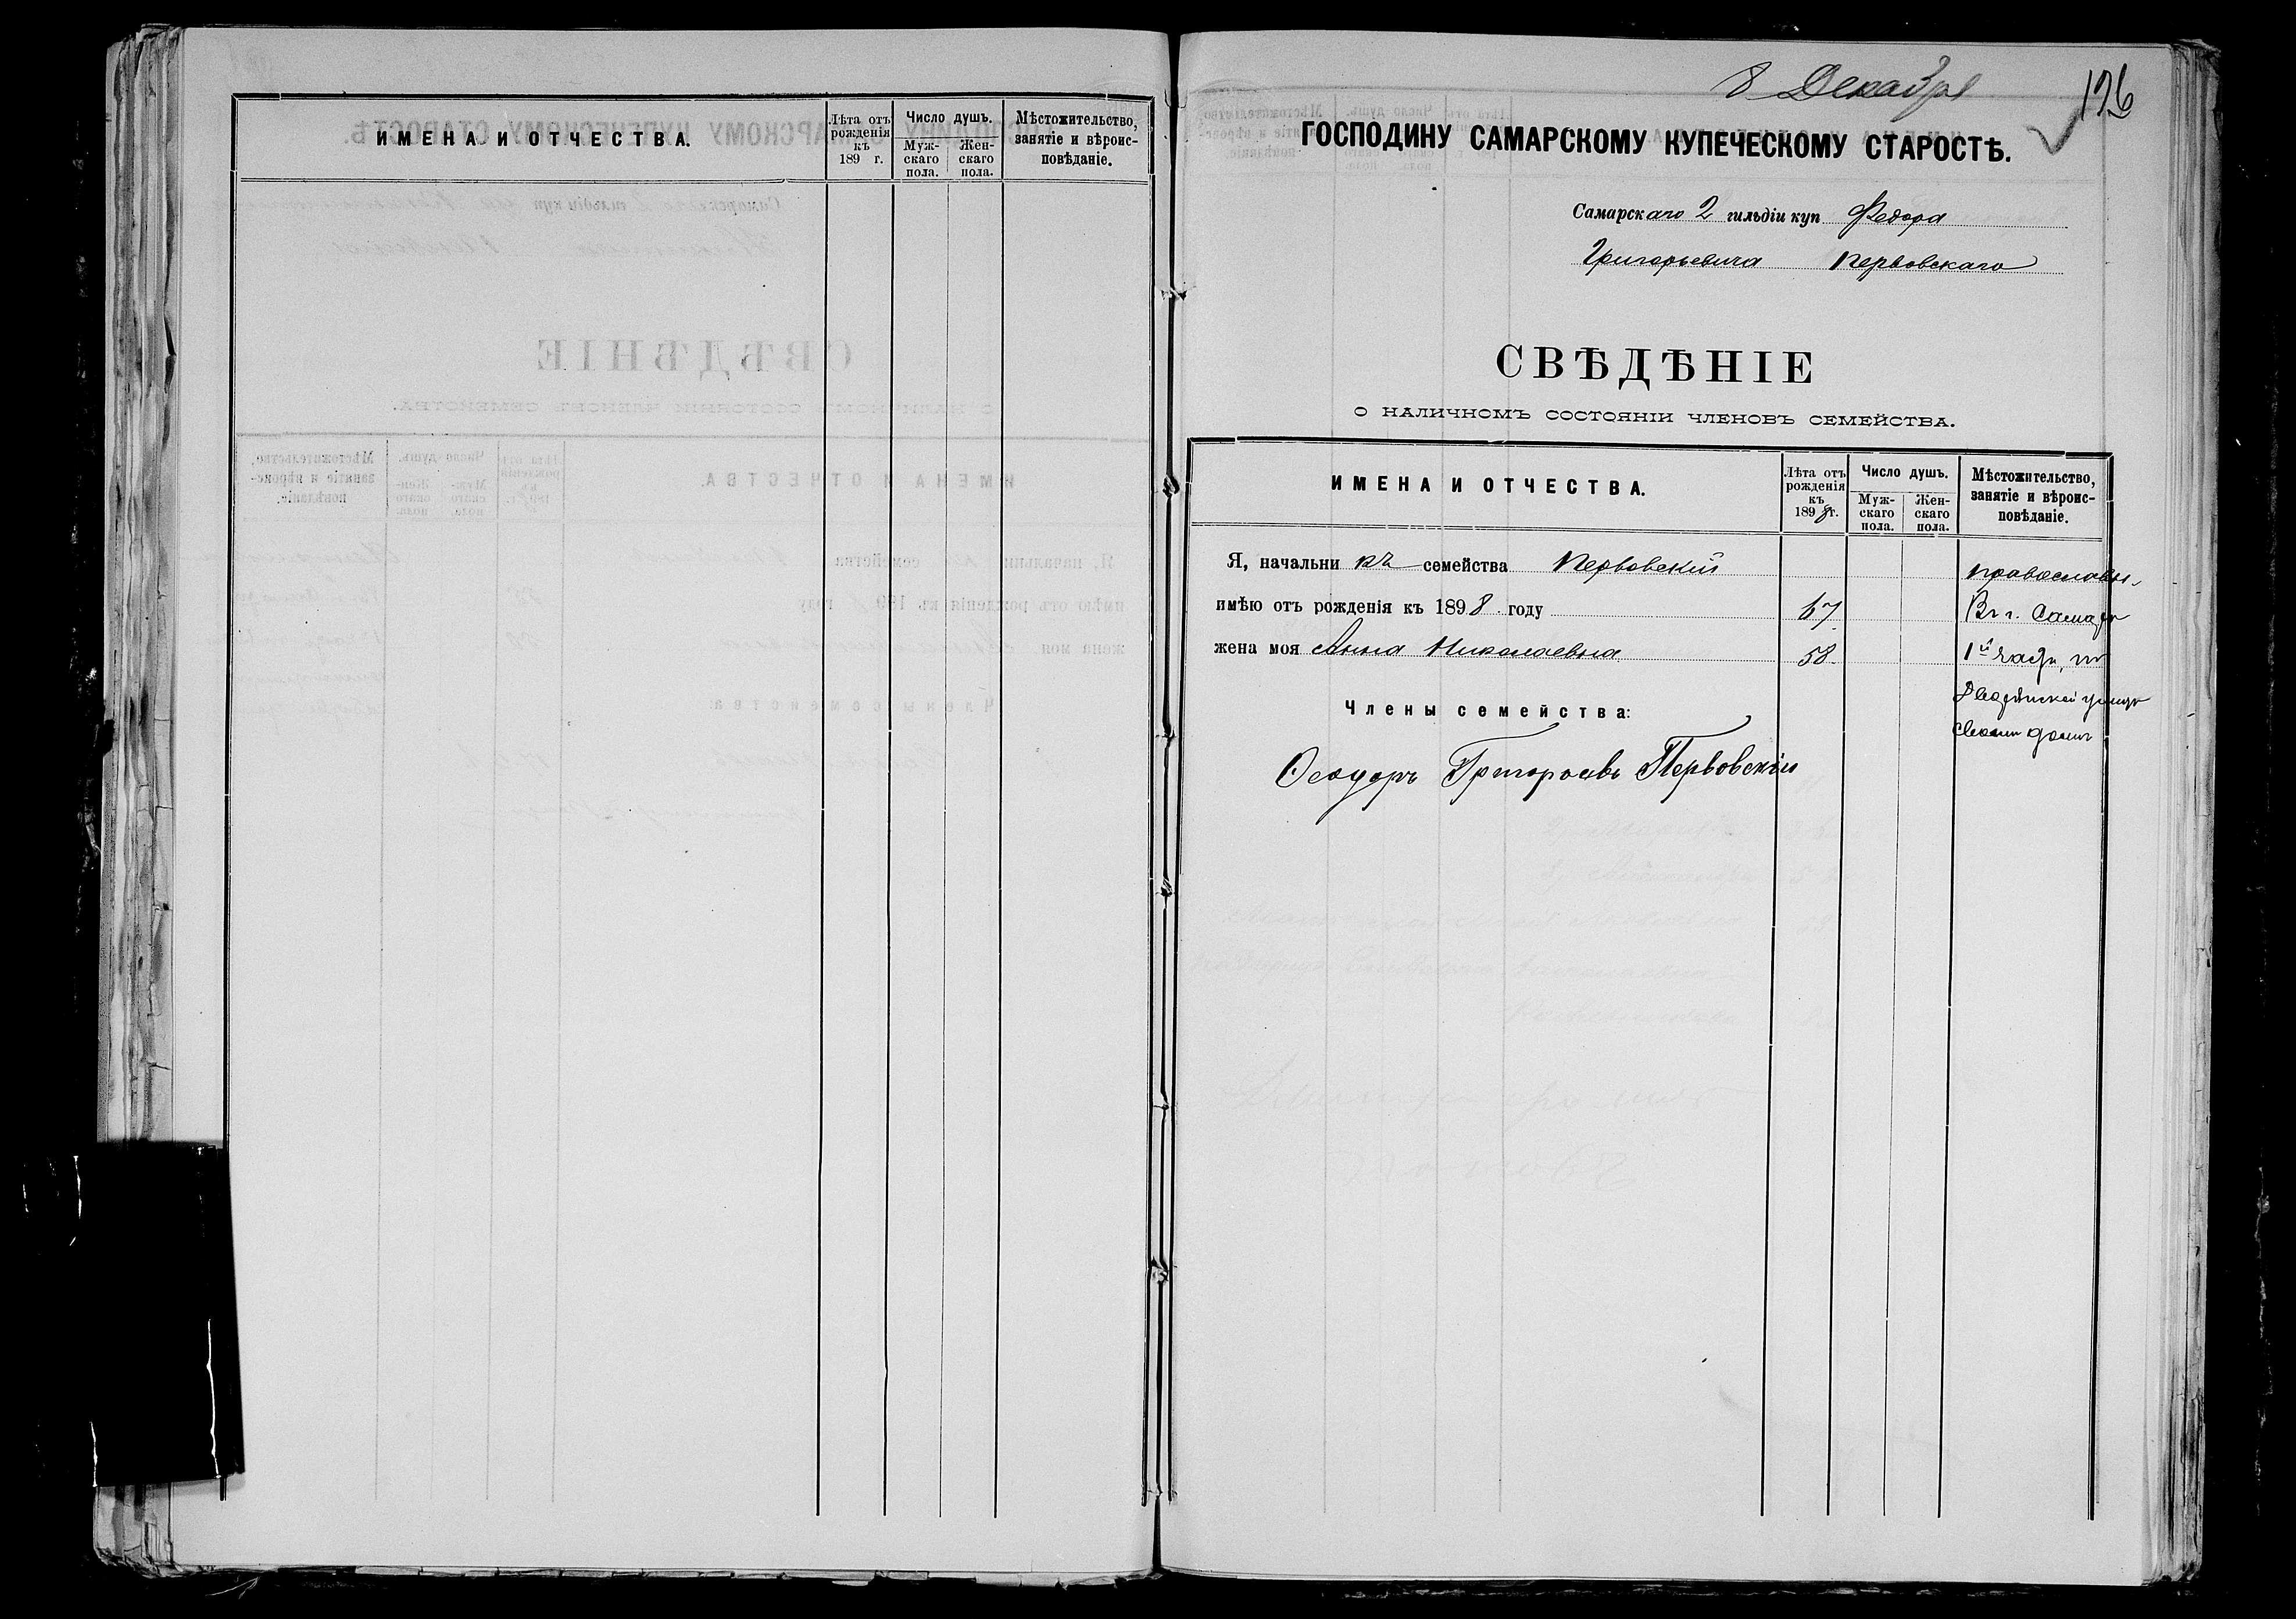 ИМЕНА И ОТЧЕСТВА.
Лѣта отъ рожденія къ 189 г.
Число душъ.
Муж-скаго пола.
Жен-скаго пола.
Мѣстожительство, занятіе и вѣроис-повѣданіе.
8 Декабря
196
ГОСПОДИНУ САМАРСКОМУ КУПЕЧЕСКОМУ СТАРОСТѢ.
Самарскаго 2 гильдіи куп Федора
Григорьевича Первовскаго
СВѢДѢНІЕ
О НАЛИЧНОМЪ СОСТОЯНІИ ЧЛЕНОВЪ СЕМЕЙСТВА.
ИМЕНА И ОТЧЕСТВА.
Лѣта отъ рожденія къ 1898 г.
Число душъ.
Муж-скаго пола.
Жен-скаго пола.
Мѣстожительство, занятіе и вѣроис-повѣданіе.
Я, начальникъ семейства Первовскій православн.
имѣю отъ рожденія къ 1898 году 67 Въ г. Самарѣ
жена моя Анна Николаевна 58 1й части, по
Дворянской улицѣ
Члены семейства:
своемъ домѣ
Ѳеодоръ Григорьевъ Первовскій